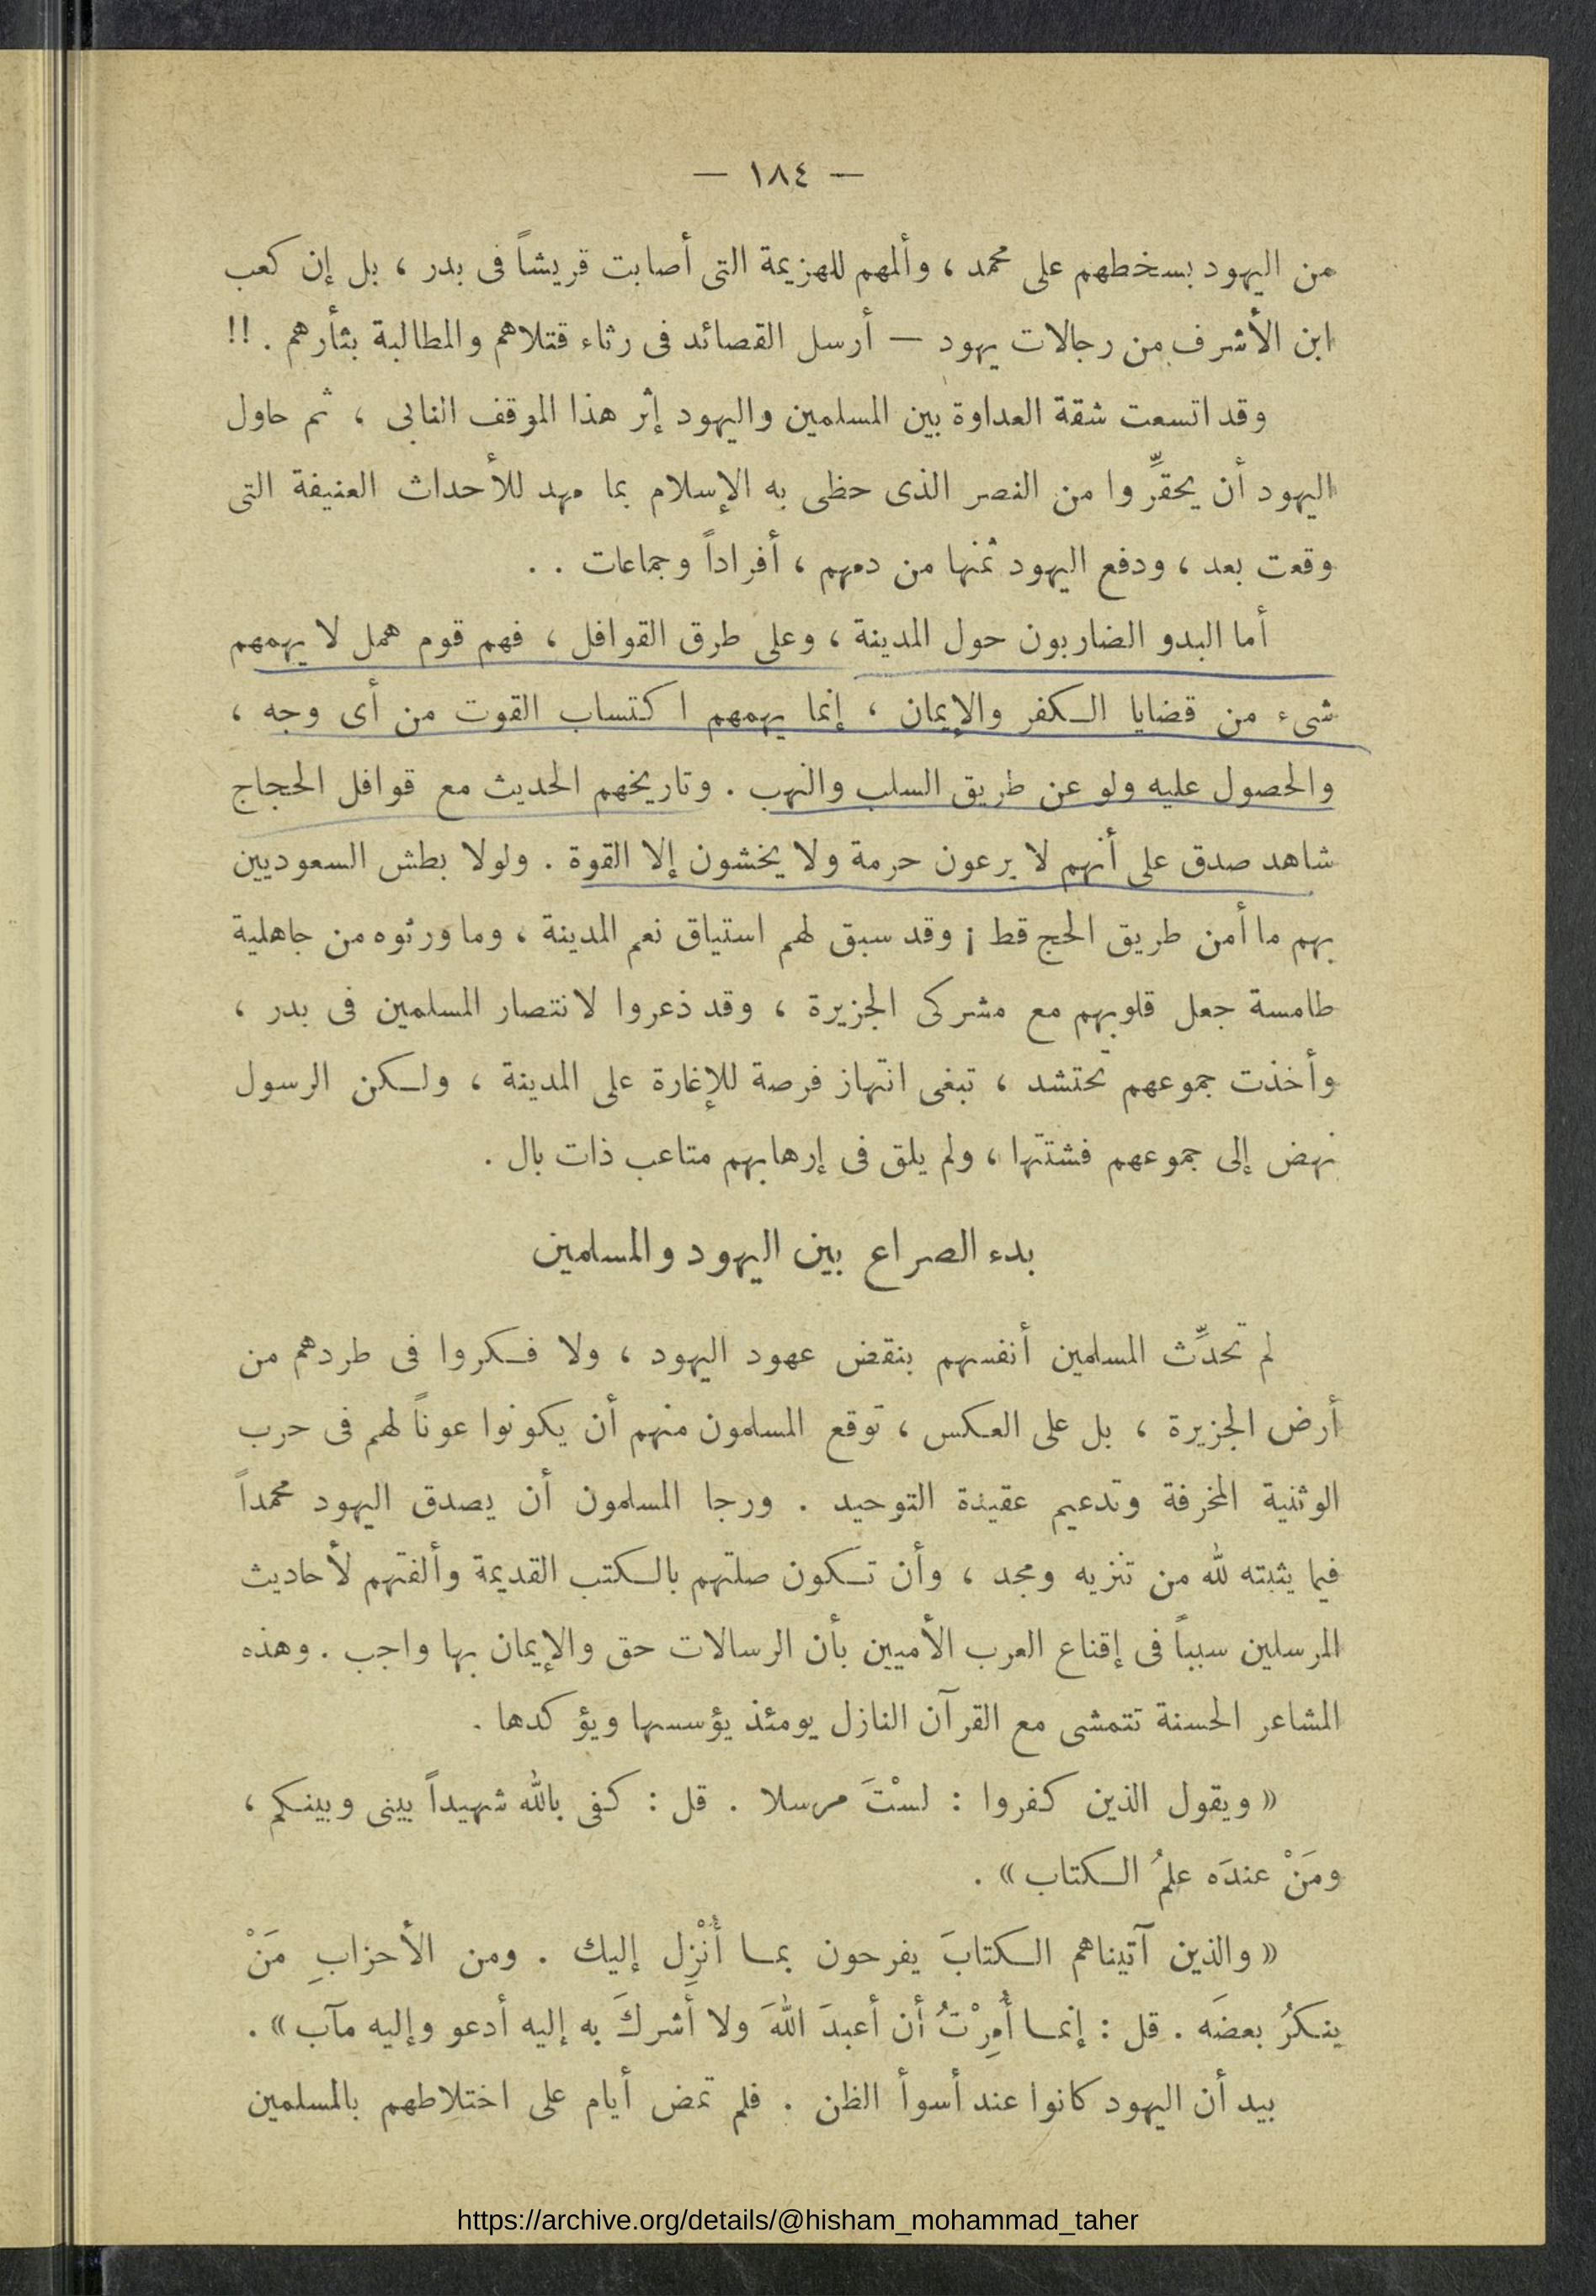 — ١٨٤ —
من اليهود بسخطهم على محمد ، وألمهم للهزيمة التى أصابت قريشاً فى بدر ، بل إن كعب
ابن الأشرف من رجالات يهود — أرسل القصائد فى رثاء قتلاهم والمطالبة بثأرهم . !!
وقد اتسعت شقة العداوة بين المسلمين واليهود إثر هذا الموقف النابى ، ثم حاول
اليهود أن يحقِّروا من النصر الذى حظى به الإسلام بما مهد للأحداث العنيفة التى
وقعت بعد ، ودفع اليهود ثمنها من دمهم ، أفراداً وجماعات . .
أما البدو الضاربون حول المدينة ، وعلى طرق القوافل ، فهم قوم همل لا يهمهم
شىء من قضايا الكفر والإيمان ، إنما يهمهم اكتساب القوت من أى وجه ،
والحصول عليه ولو عن طريق السلب والنهب . وتاريخهم الحديث مع قوافل الحجاج
شاهد صدق على أنهم لا يرعون حرمة ولا يخشون إلا القوة . ولولا بطش السعوديين
بهم ما أمن طريق الحج قط ¡ وقد سبق لهم استياق نعم المدينة ، وما ورثوه من جاهلية
طامسة جعل قلوبهم مع مشركى الجزيرة ، وقد ذعروا لانتصار المسلمين فى بدر ،
وأخذت جموعهم تحتشد ، تبغى انتهاز فرصة للإغارة على المدينة ، ولكن الرسول
نهض إلى جموعهم فشتتها ، ولم يلق فى إرهابهم متاعب ذات بال .
بدء الصراع بين اليهود والمسلمين
لم تحدِّث المسلمين أنفسهم بنقض عهود اليهود ، ولا فكروا فى طردهم من
أرض الجزيرة ، بل على العكس ، توقع المسلمون منهم أن يكونوا عوناً لهم فى حرب
الوثنية المخرفة وتدعيم عقيدة التوحيد . ورجا المسلمون أن يصدق اليهود محمداً
فيما يثبته لله من تنزيه ومجد ، وأن تكون صلتهم بالكتب القديمة وألفتهم لأحاديث
المرسلين سبباً فى إقناع العرب الأميين بأن الرسالات حق والإيمان بها واجب . وهذه
المشاعر الحسنة تتمشى مع القرآن النازل يومئذ يؤسسها ويؤكدها .
« ويقول الذين كفروا : لسْتَ مرسلا . قل : كفى بالله شهيداً بينى وبينكم ،
ومَنْ عندَه علمُ الكتاب » .
« والذين آتيناهم الكتابَ يفرحون بما أُنْزِل إليك . ومن الأحزابِ مَنْ
ينكرُ بعضَه . قل : إنما أُمِرْتُ أن أعبدَ اللهَ ولا أشركَ به إليه أدعو وإليه مآب » .
بيد أن اليهود كانوا عند أسوأ الظن . فلم تمض أيام على اختلاطهم بالمسلمين
https://archive.org/details/@hisham_mohammad_taher